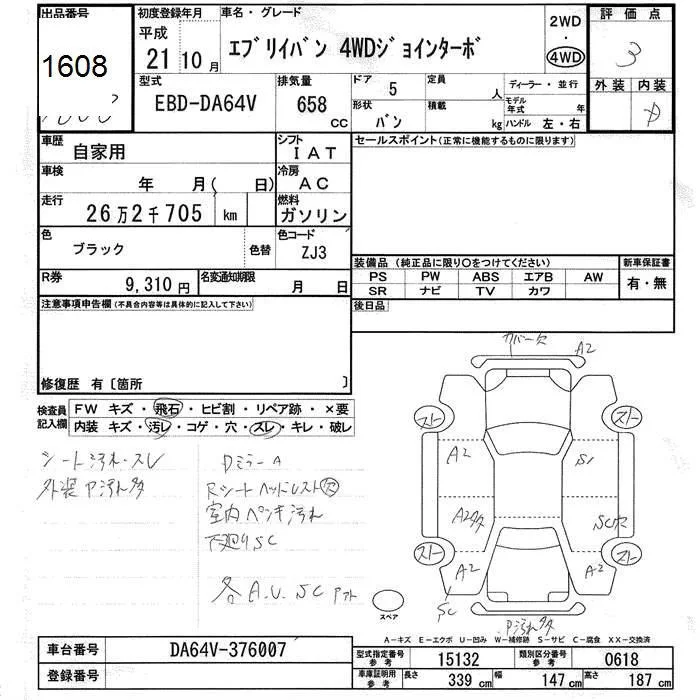 出品番号 初度登録年月 車名・グレード 2WD ・ 4WD 評価点
1608 平成 21 10月 エブリイバン 4WDジョインターボ 3
型式 EBD-DA64V 排気量 658 CC ドア 5 定員 人 ディーラー・並行 外装 内装
形状 バン 積載 kg モデル年式 年 ハンドル 左・右 D
車歴 自家用 シフト IAT セールスポイント(正常に機能するものに限ります)
車検 年 月( 日) 冷房 AC
走行 26万2千705 km 燃料 ガソリン
色 ブラック 色替 色コード ZJ3
装備品(純正品に限り○をつけてください) 新車保証書
R券 9,310円 名変通知期限 月 日 PS PW ABS エアB AW 有・無
SR ナビ TV カワ
注意事項申告欄(不具合内容等は具体的に記入して下さい) 後日品
修復歴 有〔箇所 〕
カバー欠 A2
検査員記入欄 FW キズ・飛石・ヒビ割・リペア跡・×要
内装 キズ・汚レ・コゲ・穴・スレ・キレ・破レ
スト スト
シート汚れ・スレ DミラーA A2 S1
外装P汚れ多 Rシートヘッドレスト欠
室内ペンキ汚れ A2多 SC欠
下廻りSC スト スト
A2 A2
各A.U.SC
スペア SC P汚れ多
A-キズ E-エクボ U-凹み W-補修跡 S-サビ C-腐食 XX-交換済
車台番号 DA64V-376007 型式指定番号 参考 15132 類別区分番号 参考 0618
登録番号 車庫証明用 参考 長さ 339cm 幅 147cm 高さ 187cm